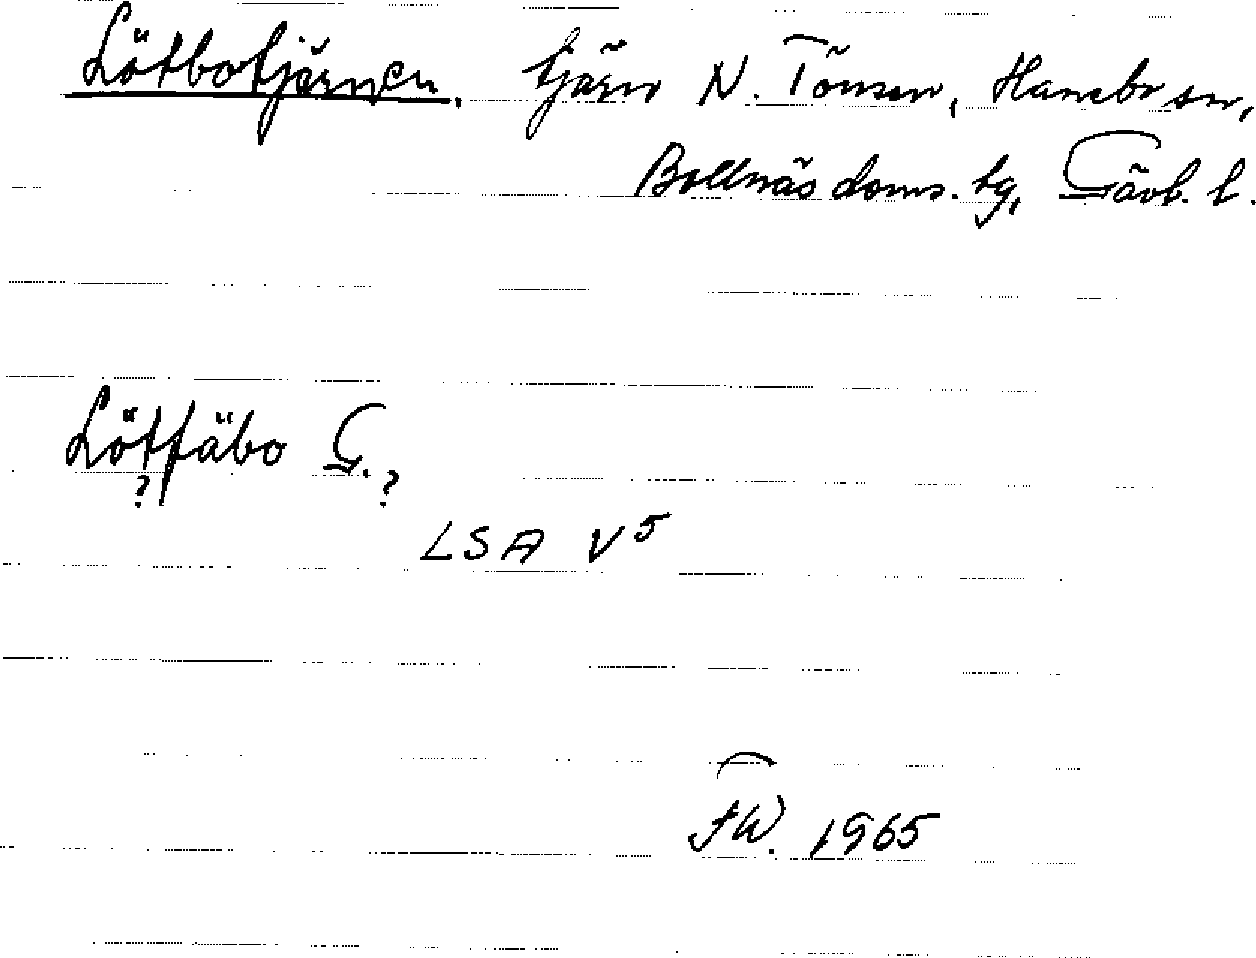 Lötbotjärnen. tjärn N. Tönsen, Hanebo sn,
Bollnäs doms. tg, Gävl. l.
Lötfäbo G.
? ?
LSA V5
FW. 1965